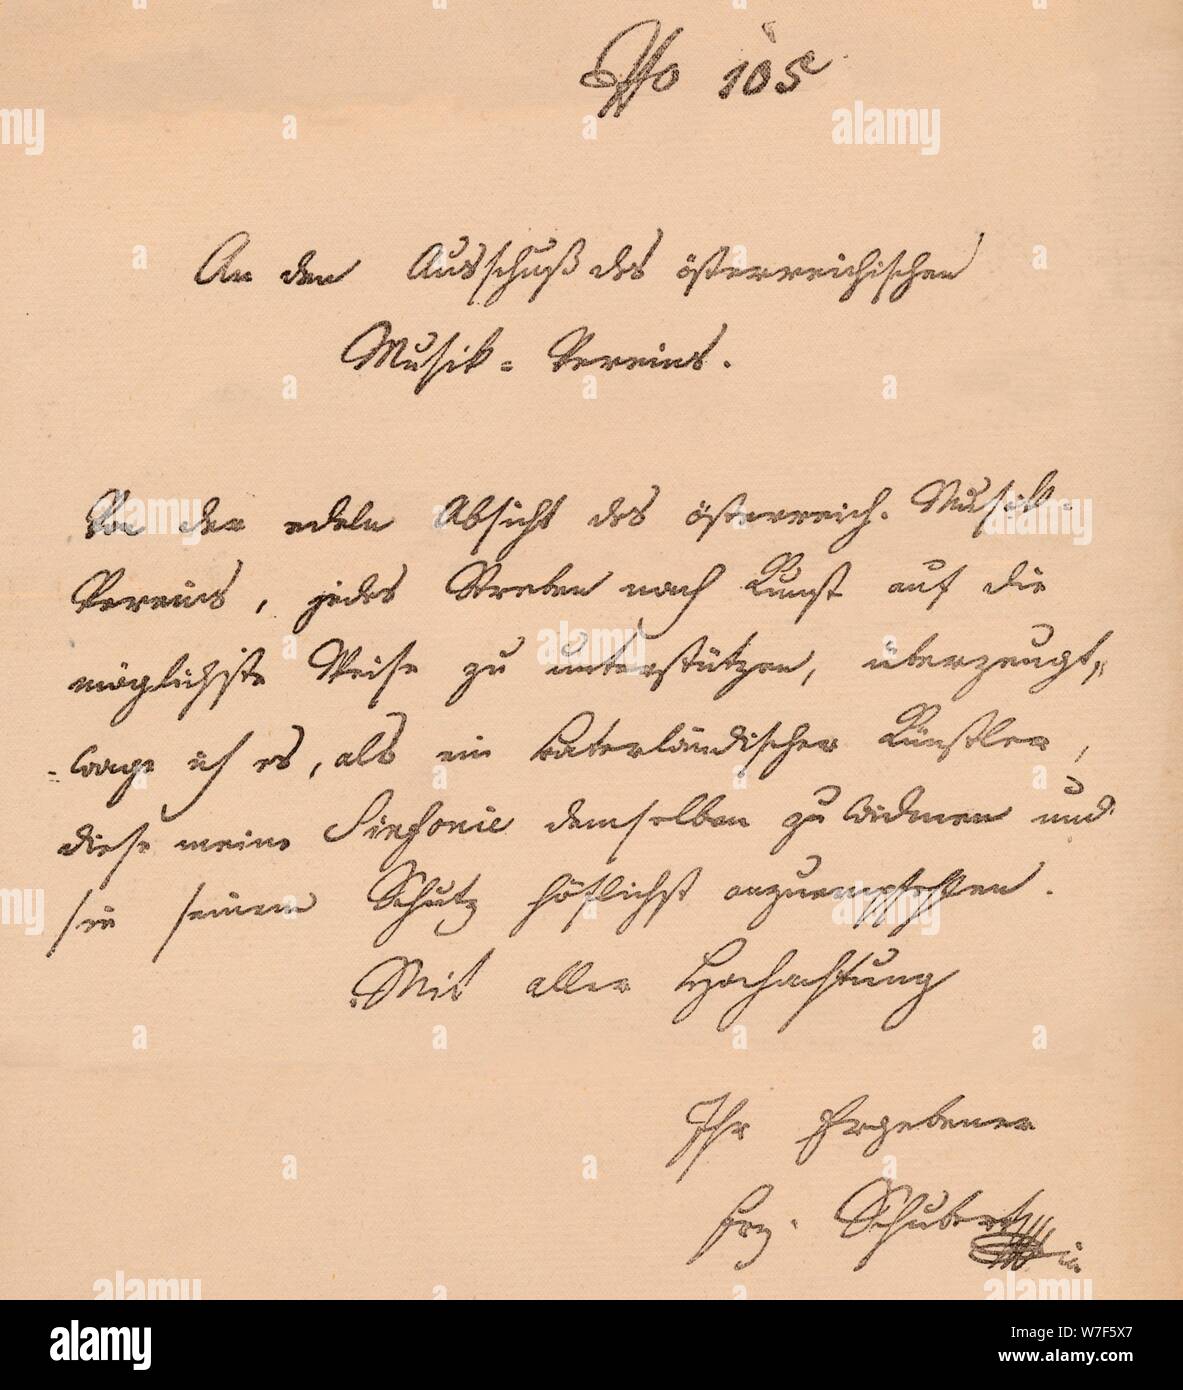 No 105
An den Ausschuß des österreichischen
Musik-Vereins.
Von der edeln Absicht des österreich. Musik-
Vereins, jedes Streben nach Kunst auf die
möglichste Weise zu unterstützen, überzeugt,
wage ich es, als ein vaterländischer Künstler,
diese meine Sinfonie demselben zu widmen und
sie seinem Schutz höflichst anzuempfehlen.
Mit aller Hochachtung
Ihr Ergebener
Frz. Schubert
alamy
Image ID: W7F5X7
www.alamy.com